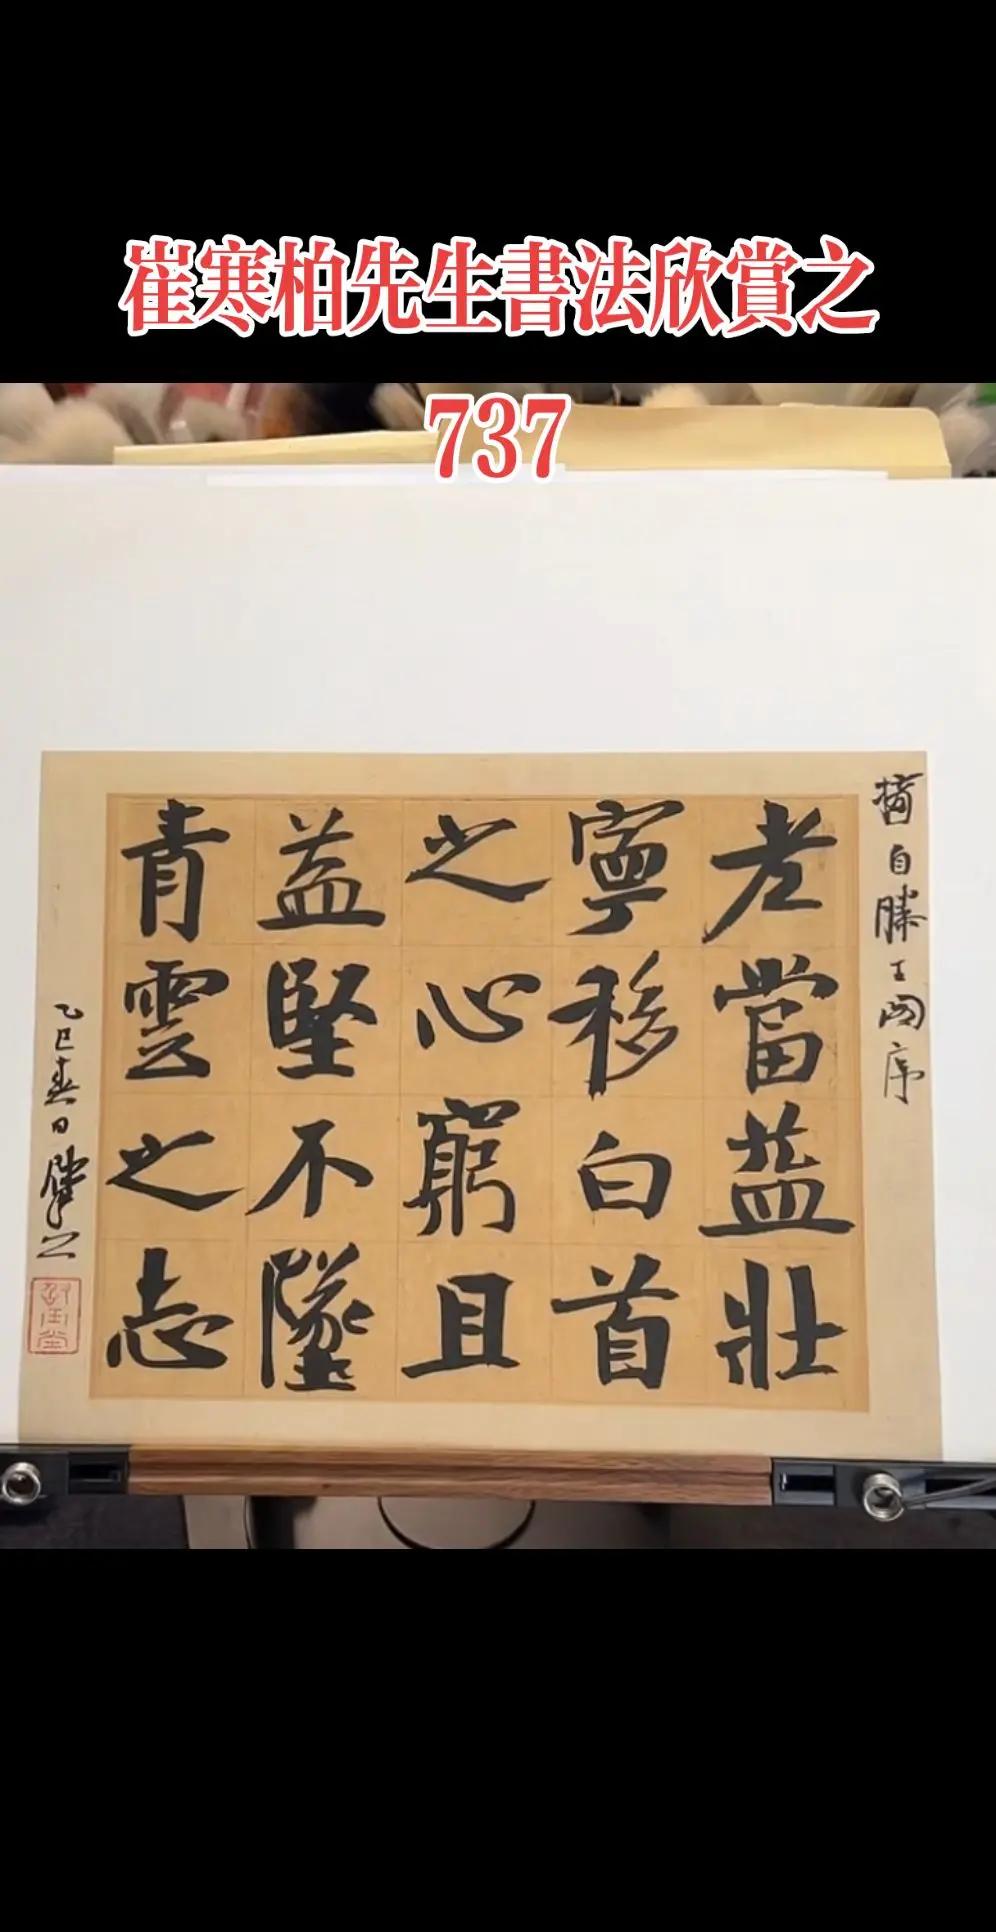 崔寒柏先生書法欣賞之
737
摘自滕王阁序
老當益壯
寧移白首
之心窮且
益堅不墜
青雲之志
乙巳春日肇之